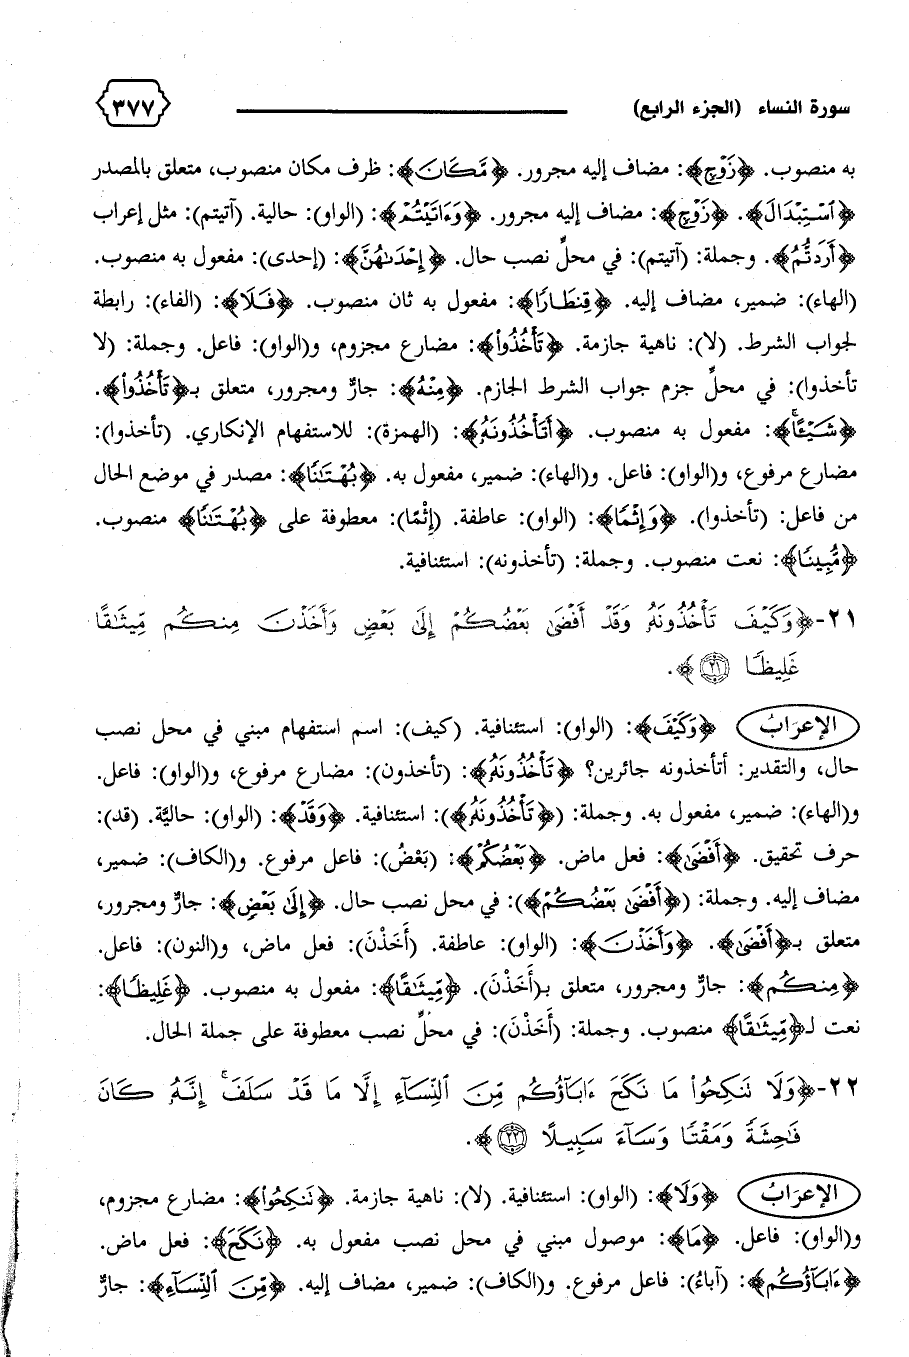 سورة النساء (الجزء الرابع) ٣٧٧
به منصوب. ﴿زَوْجٍ﴾: مضاف إليه مجرور. ﴿مَّكَانَ﴾: ظرف مكان منصوب، متعلق بالمصدر
﴿ٱسْتِبْدَالَ﴾. ﴿زَوْجٍ﴾: مضاف إليه مجرور. ﴿وَءَاتَيْتُمْ﴾: (الواو): حالية. (آتيتم): مثل إعراب
﴿أَرَدتُّمُ﴾. وجملة: (آتيتم): في محلِّ نصب حال. ﴿إِحْدَىٰهُنَّ﴾: (إحدى): مفعول به منصوب.
(الهاء): ضمير، مضاف إليه. ﴿قِنطَارًا﴾: مفعول به ثان منصوب. ﴿فَلَا﴾: (الفاء): رابطة
لجواب الشرط. (لا): ناهية جازمة. ﴿تَأْخُذُوا۟﴾: مضارع مجزوم، و(الواو): فاعل. وجملة: (لا
تأخذوا): في محلِّ جزم جواب الشرط الجازم. ﴿مِنْهُ﴾: جارٌّ ومجرور، متعلق بـ﴿تَأْخُذُوا۟﴾.
﴿شَيْـًٔا﴾: مفعول به منصوب. ﴿أَتَأْخُذُونَهُۥ﴾: (الهمزة): للاستفهام الإنكاري. (تأخذوا):
مضارع مرفوع، و(الواو): فاعل. و(الهاء): ضمير، مفعول به. ﴿بُهْتَـٰنًا﴾: مصدر في موضع الحال
من فاعل: (تأخذوا). ﴿وَإِثْمًا﴾: (الواو): عاطفة. (إِثْمًا): معطوفة على ﴿بُهْتَـٰنًا﴾ منصوب.
﴿مُّبِينًا﴾: نعت منصوب. وجملة: (تأخذونه): استئنافية.
٢١-﴿وَكَيْفَ تَأْخُذُونَهُۥ وَقَدْ أَفْضَىٰ بَعْضُكُمْ إِلَىٰ بَعْضٍ وَأَخَذْنَ مِنكُم مِّيثَـٰقًا
غَلِيظًا ٢١﴾.
الإعرَابُ ﴿وَكَيْفَ﴾: (الواو): استئنافية. (كيف): اسم استفهام مبني في محل نصب
حال، والتقدير: أتأخذونه جائرين؟ ﴿تَأْخُذُونَهُۥ﴾: (تأخذون): مضارع مرفوع، و(الواو): فاعل.
و(الهاء): ضمير، مفعول به. وجملة: (﴿تَأْخُذُونَهُۥ﴾): استئنافية. ﴿وَقَدْ﴾: (الواو): حاليَّة. (قد):
حرف تحقيق. ﴿أَفْضَىٰ﴾: فعل ماض. ﴿بَعْضُكُمْ﴾: (بَعْضُ): فاعل مرفوع. و(الكاف): ضمير،
مضاف إليه. وجملة: (﴿أَفْضَىٰ بَعْضُكُمْ﴾): في محل نصب حال. ﴿إِلَىٰ بَعْضٍ﴾: جارٌّ ومجرور،
متعلق بـ﴿أَفْضَىٰ﴾. ﴿وَأَخَذْنَ﴾: (الواو): عاطفة. (أَخَذْنَ): فعل ماض، و(النون): فاعل.
﴿مِنكُم﴾: جارٌّ ومجرور، متعلق بـ(أَخَذْنَ). ﴿مِّيثَـٰقًا﴾: مفعول به منصوب. ﴿غَلِيظًا﴾:
نعت لـ﴿مِّيثَـٰقًا﴾ منصوب. وجملة: (أَخَذْنَ): في محلِّ نصب معطوفة على جملة الحال.
٢٢-﴿وَلَا تَنكِحُوا۟ مَا نَكَحَ ءَابَآؤُكُم مِّنَ ٱلنِّسَآءِ إِلَّا مَا قَدْ سَلَفَ ۚ إِنَّهُۥ كَانَ
فَـٰحِشَةً وَمَقْتًا وَسَآءَ سَبِيلًا ٢٢﴾.
الإعرَابُ ﴿وَلَا﴾: (الواو): استئنافية. (لا): ناهية جازمة. ﴿تَنكِحُوا۟﴾: مضارع مجزوم،
و(الواو): فاعل. ﴿مَا﴾: موصول مبني في محل نصب مفعول به. ﴿نَكَحَ﴾: فعل ماض.
﴿ءَابَآؤُكُم﴾: (آباءُ): فاعل مرفوع. و(الكاف): ضمير، مضاف إليه. ﴿مِّنَ ٱلنِّسَآءِ﴾: جارٌّ